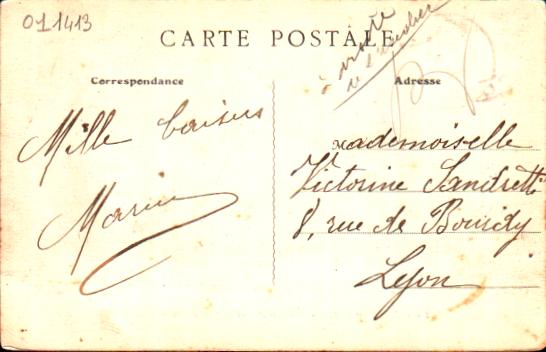 011413
CARTE POSTALE
Correspondance
Adresse
à
Mille baisers
Marius
Mademoiselle
Victorine Sandretti
8, rue de Bourdy
Lyon